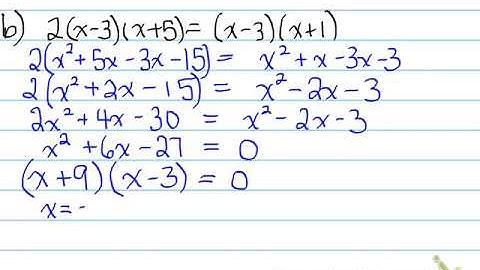 b) 2(x-3)(x+5) = (x-3)(x+1)
2(x²+5x-3x-15) = x²+x-3x-3
2(x²+2x-15) = x²-2x-3
2x²+4x-30 = x²-2x-3
x²+6x-27 = 0
(x+9)(x-3) = 0
x=-